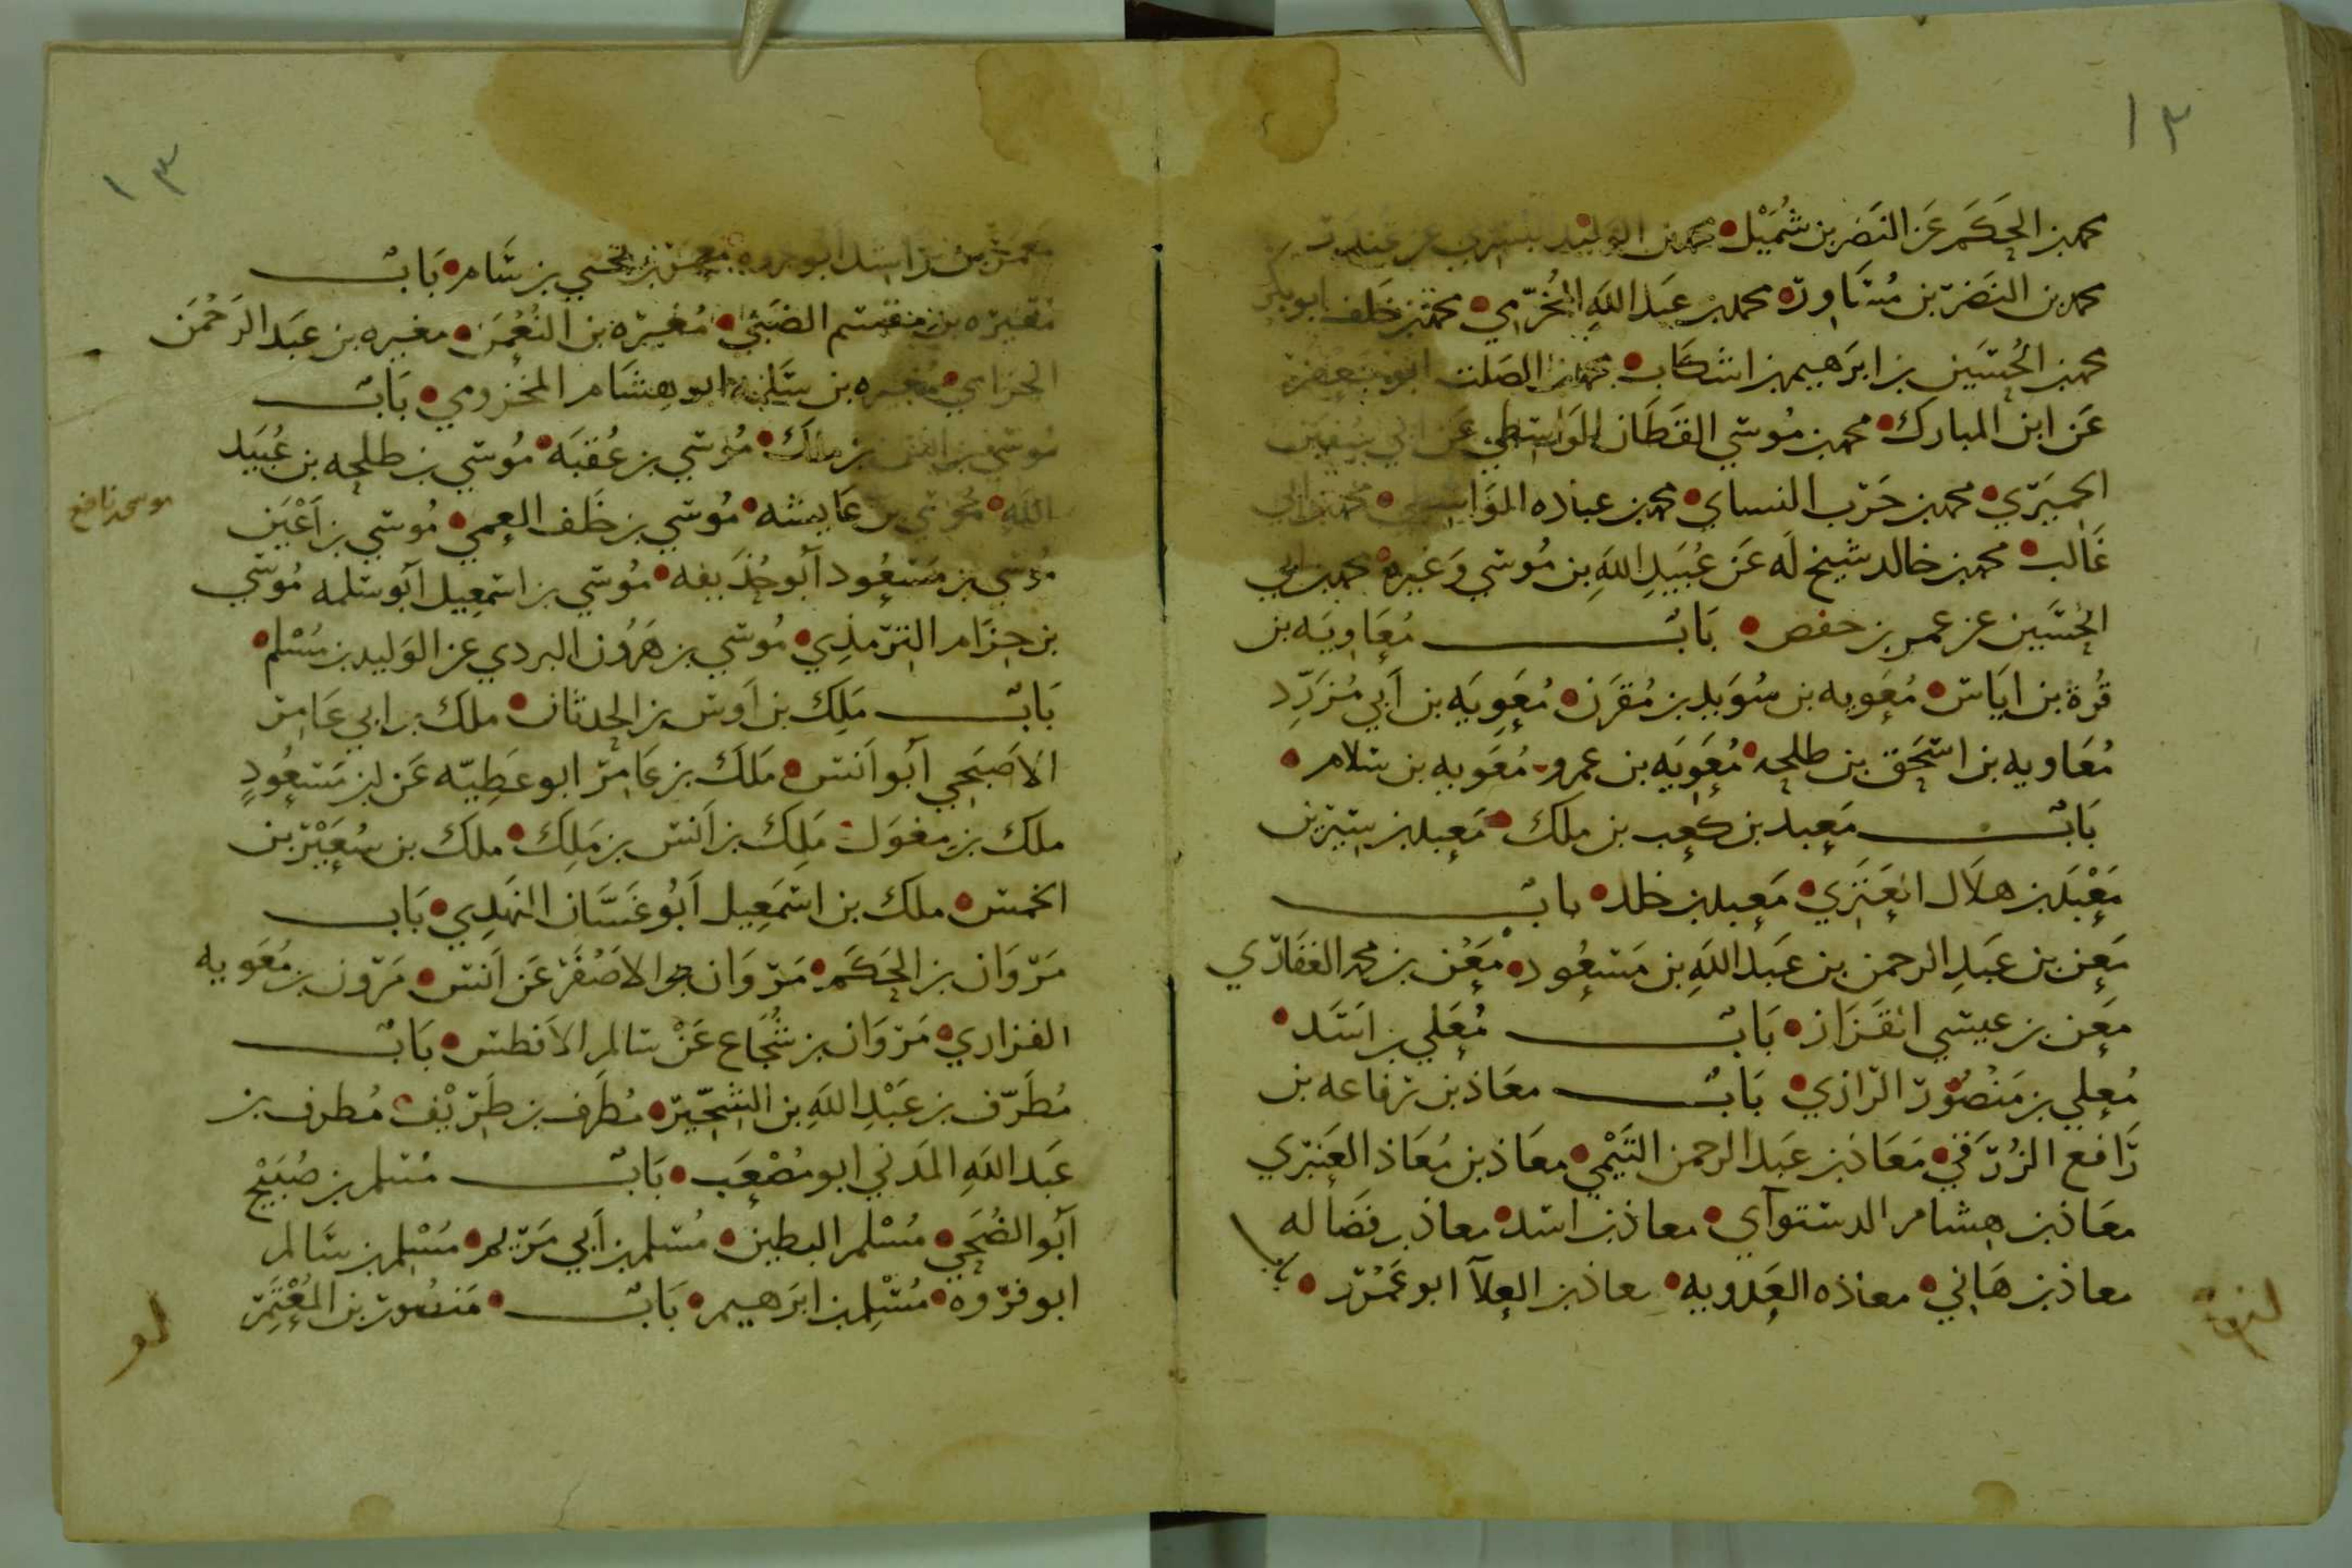 ١٢
محمد بن الحَكَم عَن النَضر بن شُمَيْل محمد بن الوليد البسري عن غندر
محمد بن النضَر بن مُسَاور محمد بن عَبد اللهِ المُخَرّمي محمد بن خلف ابو بكر
محمد بن الحُسَين بن ابرَهيم بن اشكَاب محمد بن الصَلت ابو يَعلى
عَن ابن المبارك محمد بن مُوسي القَطَان الوَاسطي عَن ابي سفين
الحِميَري محمد بن حَرب النساي محمد بن عباده الوَاسطي محمد بن ابي
غَالب محمد بن خالد شيخ لَه عَن عُبَيدِ اللهِ بن مُوسي وَغيره محمد بن ابي
الحُسَين عن عمر بن حفص بَابٌ مُعَاوِيَه بن
قُرة بن ايَاس مُعَويه بن سُوَيد بن مُقَرن مُعَوِيَه بن أَبي مُزَرِّد
مُعَاويه بن اسحَق بن طلحه مُعَوِيَه بن عمرو مُعَويه بن سلام
بَابٌ مَعبد بن كعب بن ملك مَعبد بن سيرين
مَعْبَد بن هلَال العَنَزي مَعبد بن خلد بابٌ
مَعن بن عَبدِ الرحمن بن عَبد اللهِ بن مَسعُود مَعْن بن محمد الغفَاري
مَعن بن عيسي القَزاز بَابٌ مُعَلي بن اسَد
مُعلي بن مَنصُور الرازي بَابٌ معَاذ بن رفاعه بن
رَافع الزُرَقي مَعَاذ بن عَبد الرحمن التَيْمي معَاذ بن مُعَاذ العَنبَري
معَاذ بن هِشام الدستوَآي معاذ بن اسد معاذ بن فضَاله
معاذ بن هَاني معاذه العَدويه معاذ بن العلآ ابو عَمرو
١٣
مَعمَر بن رَاشد ابو عروه مَعمَر بن يحيي بن سَام بَابٌ
مُغيرَه بن مقسم الضَبّي مُغيرَه بن النُعْمَن مغيره بن عَبد الرَحْمَن
الحزامي مُغيره بن سَلمه ابو هشَام المخزومي بَابٌ
مُوسي بن انس بن ملك مُوسي بن عُقبَه مُوسي بن طلحه بن عُبَيد
اللهِ مُوسي بن ابي عَايشَه مُوسي بن خَلف العمي مُوسي بن أَعْيَن
موسى بن نافع
مُوسي بن مَسعُود اَبو حُذَيفه مُوسي بن اسمعِيل اَبو سلمه مُوسي
بن حزَام الترمذِي مُوسي بن هَرُون البردي عن الوَليد بن مُسْلم
بَابٌ مَلِك بن اَوس بن الحدثَان ملك بن ابي عَامر
الاَصبَحي اَبو اَنس مَلك بن عَامر ابو عَطِيّه عَن ابن مَسعُودٍ
ملك بن مغوَل مَلِك بن اَنس بن مَلِك ملك بن سُعَيْر بن
الخمس ملك بن اسمَعِيل اَبُو غَسَّان النهدِي بَاب
مَروَان بن الحَكَم مَروَان الاصفَر عَن اَنس مَرون بن مُعَويه
الفزاري مَروَان بن شُجَاع عَنْ سالم الاَفطس بَابٌ
مُطَرّف بن عَبْدِ اللهِ بن الشِخّير مُطَرف بن طَريْف مُطرف بن
عَبد اللهِ المَدني ابو مُصْعَب بَابٌ مُسلم بن صُبَيْح
اَبُو الضُحَي مُسْلم البطين مُسلم بن اَبي مَريم مُسْلم بن سَالم
ابو فروه مُسْلِم بن ابرَهيم بَابٌ مَنصُور بن المُعْتَمِر